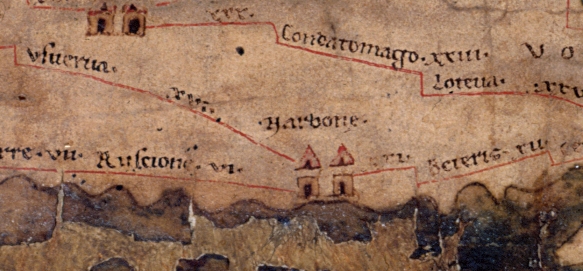 xxx.
Condatomago. xxiii.
V O
Usuerua.
Loteua.
xvi.
Narbone.
Ruscione. vi.
vii.
xvi.
Beteris. xii